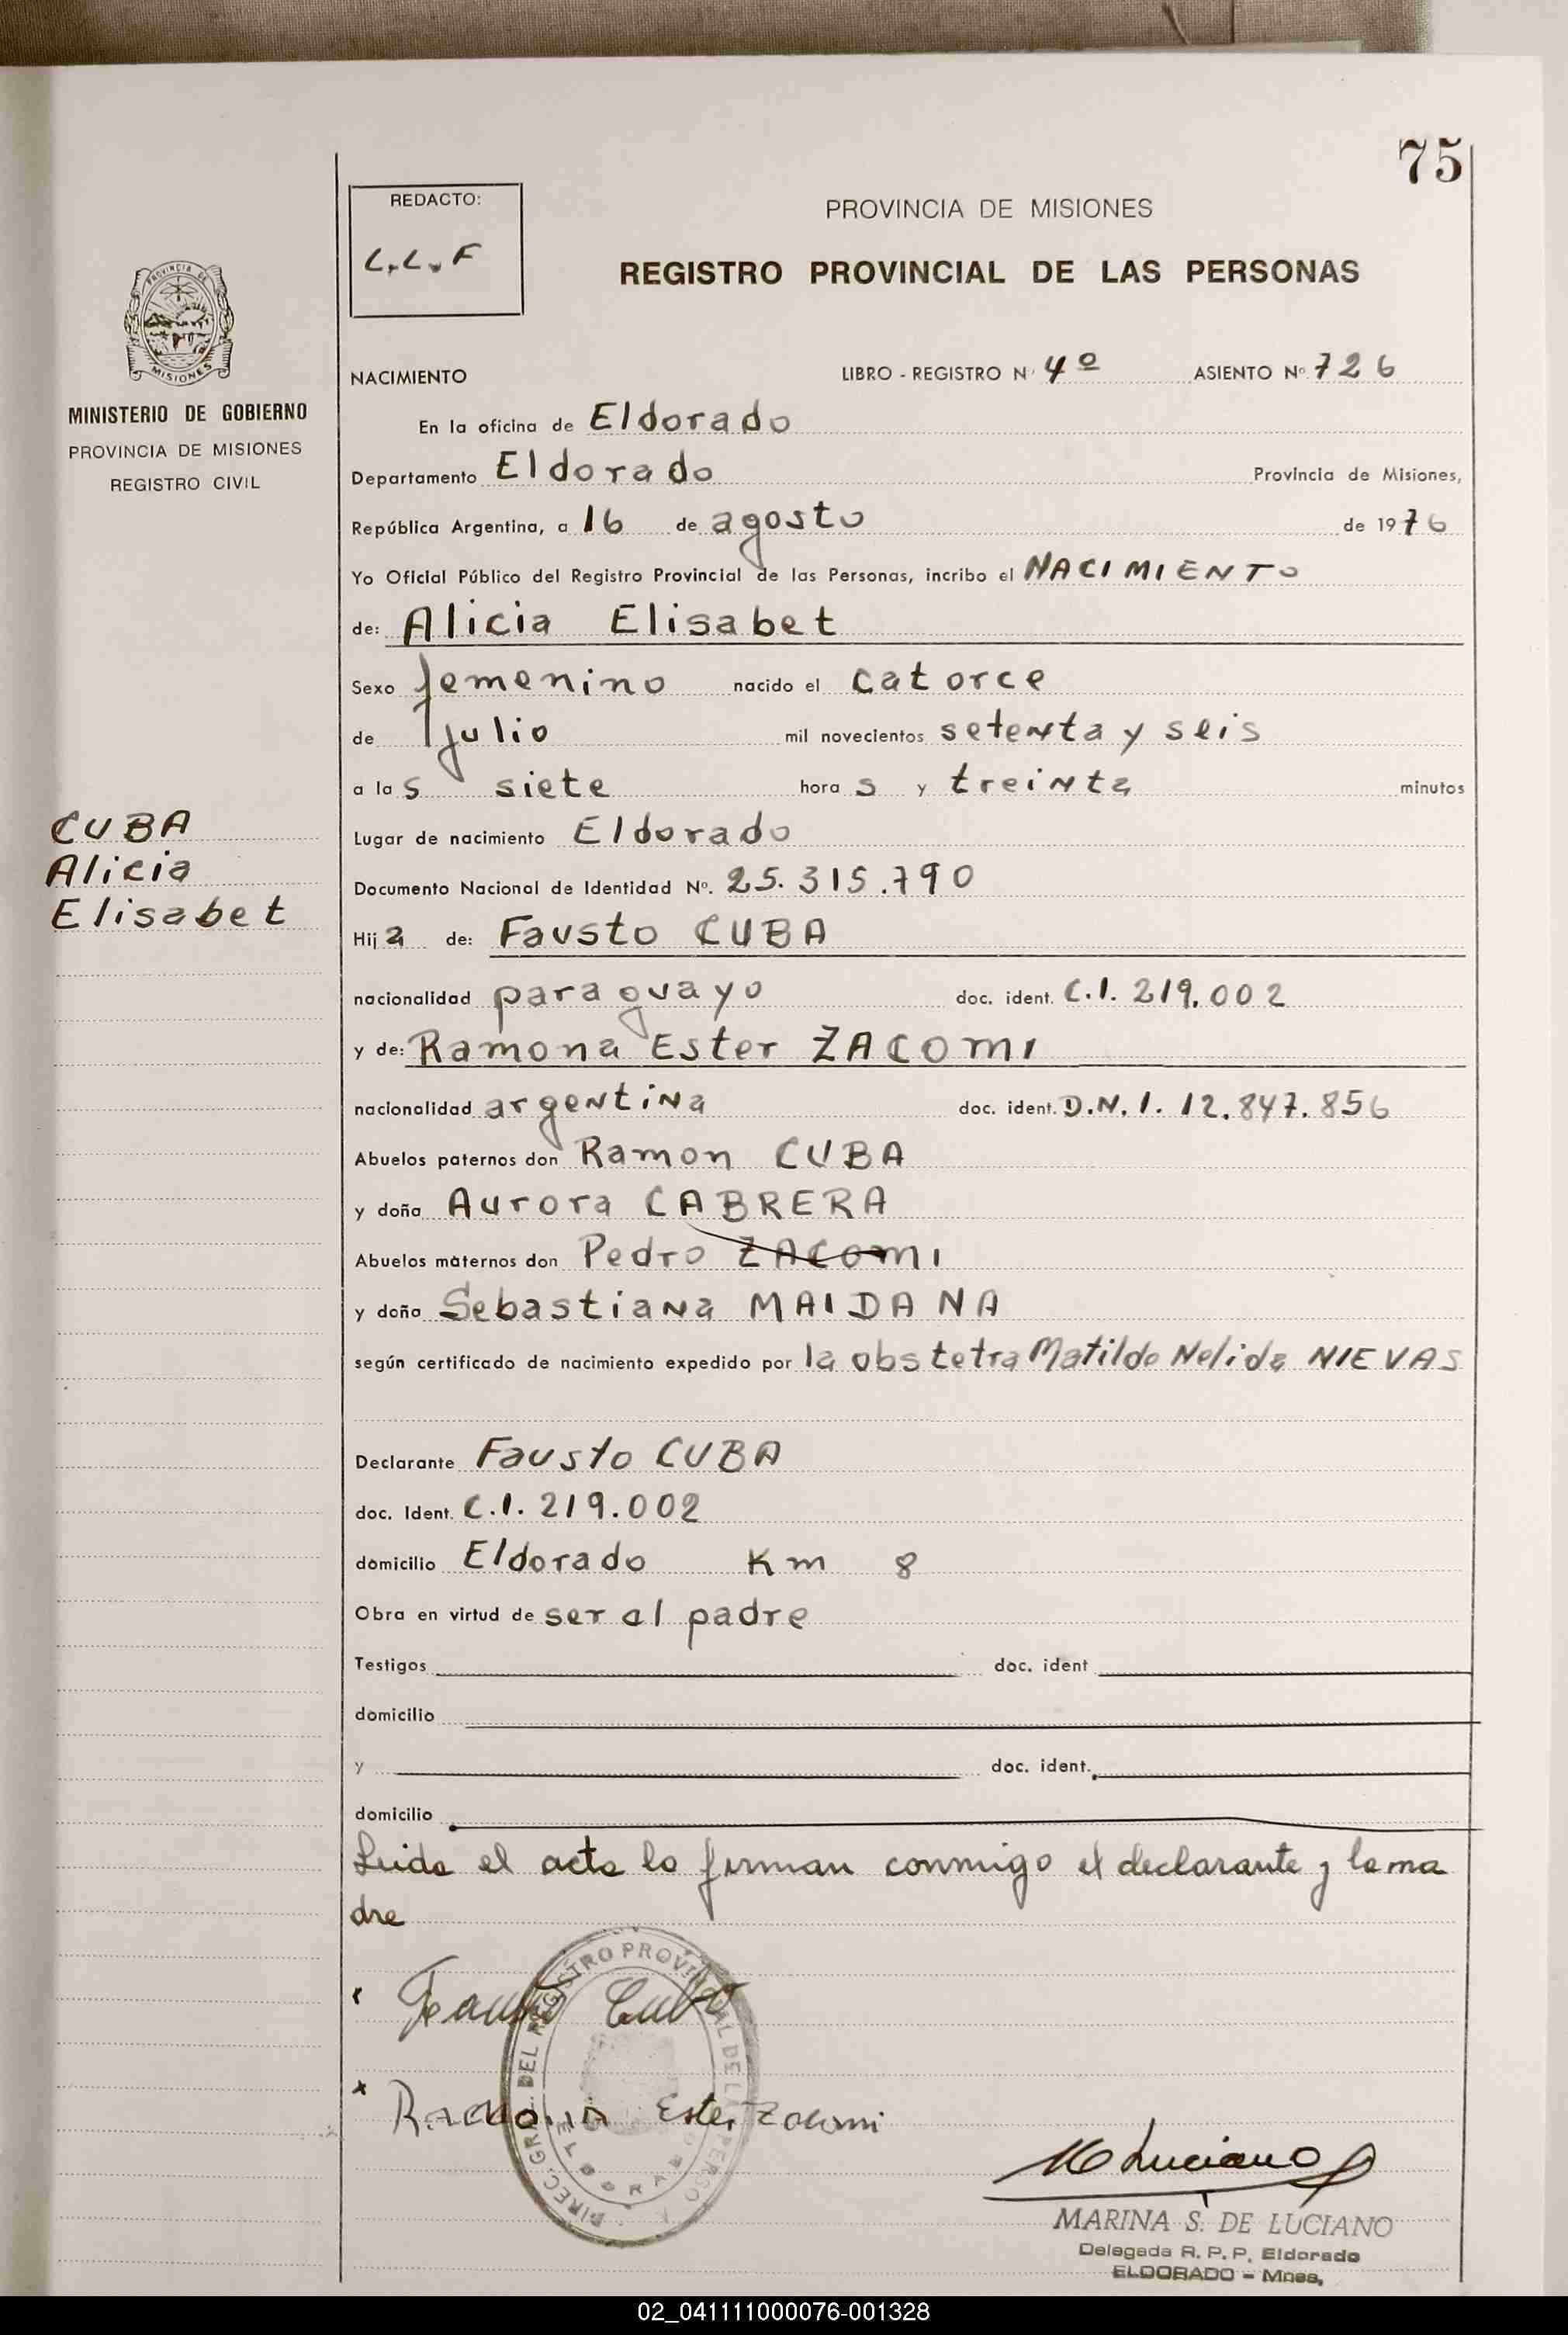 75
REDACTO:
L.L.F
PROVINCIA DE MISIONES
REGISTRO PROVINCIAL DE LAS PERSONAS
PROVINCIA DE
MISIONES
MINISTERIO DE GOBIERNO
PROVINCIA DE MISIONES
REGISTRO CIVIL
NACIMIENTO LIBRO - REGISTRO Nº 4º ASIENTO Nº 726
En la oficina de Eldorado
Departamento Eldorado Provincia de Misiones,
República Argentina, a 16 de agosto de 1976
Yo Oficial Público del Registro Provincial de las Personas, incribo el NACIMIENTO
de: Alicia Elisabet
Sexo femenino nacido el catorce
de julio mil novecientos setenta y seis
a las siete horas y treinta minutos
CUBA
Alicia
Elisabet
Lugar de nacimiento Eldorado
Documento Nacional de Identidad Nº. 25.315.790
Hija de: Fausto CUBA
nacionalidad paraguayo doc. ident. C.I. 219.002
y de: Ramona Ester ZACOMI
nacionalidad argentina doc. ident. D.N.I. 12.847.856
Abuelos paternos don Ramon CUBA
y doña Aurora CABRERA
Abuelos maternos don Pedro ZACOMI
y doña Sebastiana MAIDANA
según certificado de nacimiento expedido por la obstetra Matilde Nelida NIEVAS
Declarante Fausto CUBA
doc. Ident. C.I. 219.002
domicilio Eldorado Km 8
Obra en virtud de ser al padre
Testigos doc. ident
domicilio
y doc. ident.
domicilio
Leida el acta la firman conmigo el declarante y la ma
dre
Fausto Cuba
Ramona Ester Zacomi
DIREC. GRAL. DEL REGISTRO PROVINCIAL DE LAS PERSO
ELDORADO
M Luciano
MARINA S. DE LUCIANO
Delegada R. P. P. Eldorado
ELDORADO - Mnes,
02_041111000076-001328